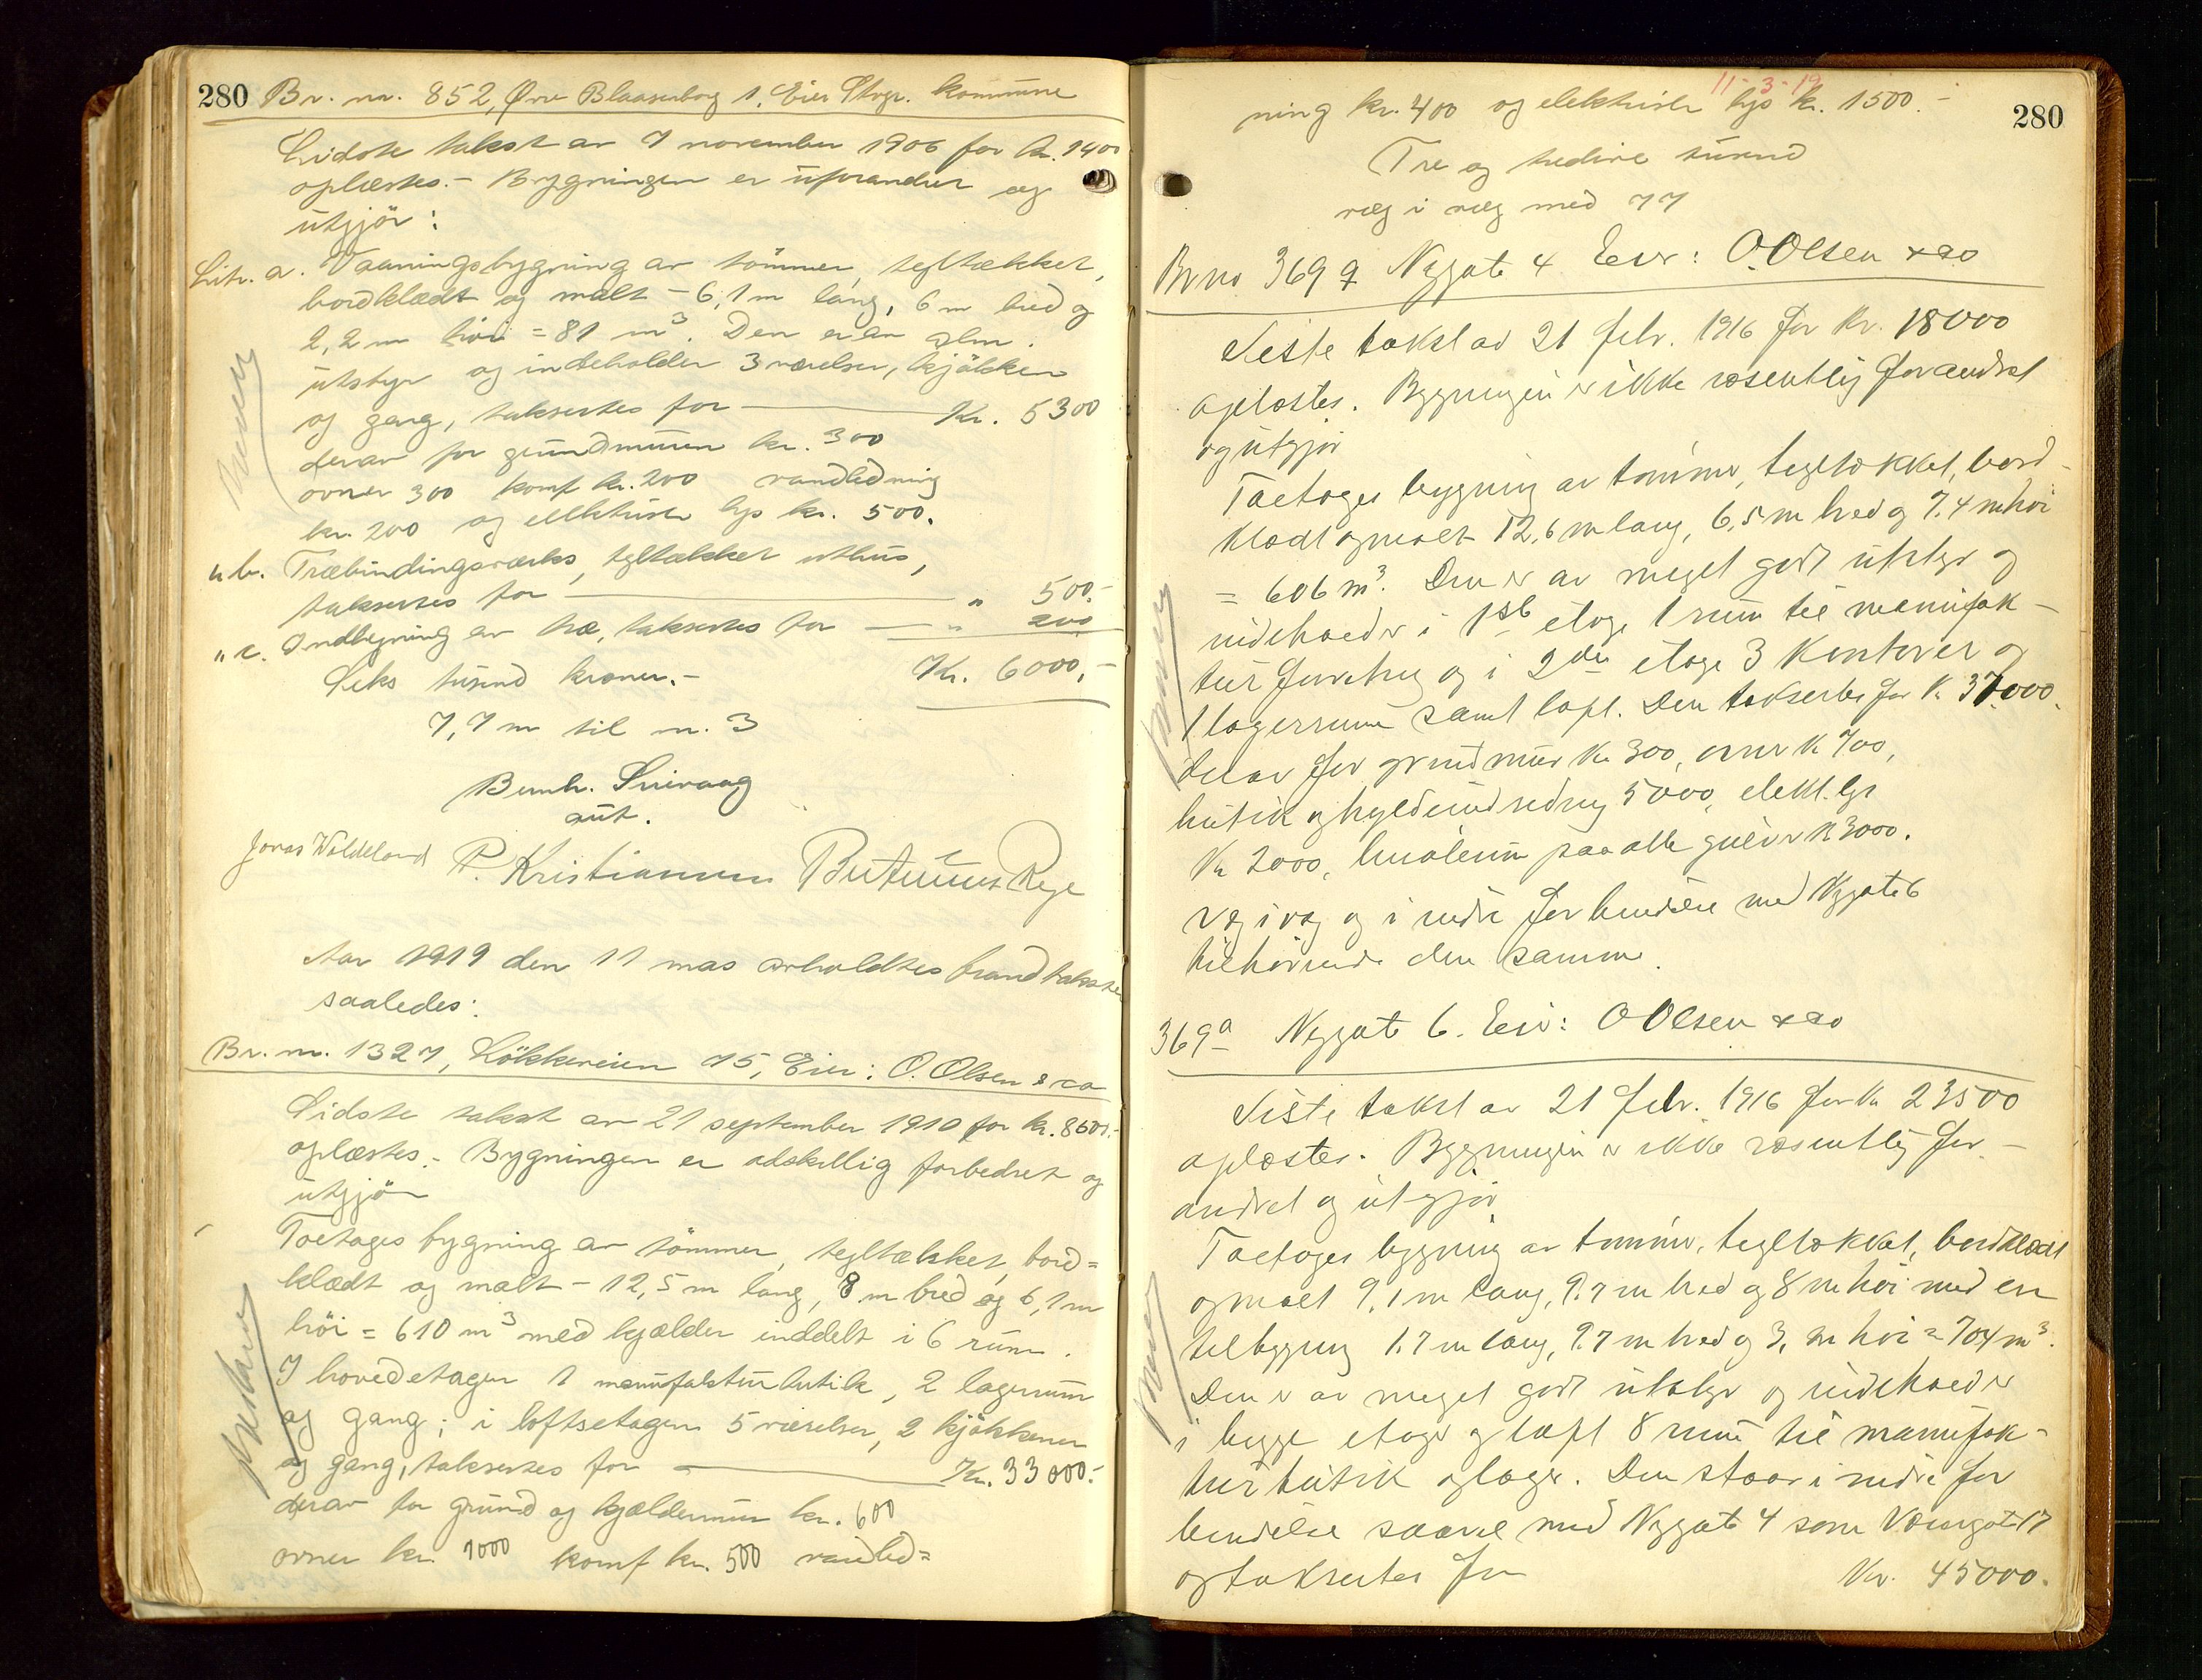 280 Br. nr. 852, Øvre Blaasenborg 1, Eier Stvgr. kommune
Sidste takst av 7 november 1906 for kr. 1400
oplæstes. - Bygningen er uforandret og
utgjör:
Litr. a. Vaaningsbygning av tömmer, tegltækket,
bordklædt og malt - 6,1 m lang, 6 m bred og
2,2 m höi = 81 m³. Den er av alm.
utstyr og indeholder 3 værelser, kjökken
og gang, taksertes for Kr. 5300
derav for grundmuren kr. 300
ovner 300 komf kr. 200 vandledning
kr. 200 og elektrisk lys kr. 500.
" b. Træbindingsværks, tegltækket uthus,
taksertes for " 500.-
" c. Indbygning av træ, taksertes for " 200
Seks tusend kroner.- Kr. 6000.-
7,7 m til nr. 3
Bernh.
aut.
Jonas Waldeland P. Kristiansen Rege
Aar 1919 den 11 mars avholdtes brandtakster
saaledes:
Br. nr. 1327, Lökkeveien 75, Eier: O. Olsen & co
Sidste takst av 21 september 1910 for kr. 8600.-
oplæstes.- Bygningen er adskillig forbedret og
utgjör
Toetages bygning av tömmer, tegltækket, bord=
klædt og malt - 12,5 m lang, 8 m bred og 6,1 m
höi = 610 m³ med kjælder inddelt i 6 rum.
I hovedetagen 1 manufakturbutik, 2 lagerrum
og gang; i loftsetagen 5 værelser, 2 kjökkener
og gang, taksertes for Kr. 33000.-
derav for grund og kjældermur kr. 600
ovner kr. 1000 komf kr. 500 vandled=
11-3-19
280
ning kr. 400 og elektrisk lys kr. 1500.-
Tre og tredive tusend
væg i væg med 77
Br no 369 Nygate 4 Eier: O. Olsen & co
Siste takst av 21 febr. 1916 for Kr. 18000
oplæstes. Bygningen er ikke væsentlig forandret
og utgjör
Toetages bygning av tømmer, tegltækket, bord-
klædt og malt 12,6 m lang, 6,5 m bred og 7.4 m höi
= 606 m³. Den er av meget godt utstyr og
indeholder i 1ste etage 1 rum til manufak-
tur forretning og i 2den etage 3 kontorer og
1 lagerrum samt loft. Den takseres for Kr 37000.
derav for grundmur Kr 300, ovner Kr 700,
butik og hyldeindredning 5000, elekt. lys
Kr 2000, linoleum paa alle gulver Kr 3000.
væg i væg og i indre forbindelse med Nygate 6
tilhörende den samme.
369 a Nygate 6. Eier: O Olsen & co
Siste takst av 21 febr. 1916 for Kr 23500
oplæstes. Bygningen er ikke væsentlig for-
andret og utgjör
Toetages bygning av tømmer, tegltækket, bordklædt
og malt 9.1 m lang, 9.7 m bred og 8 m höi med en
tilbygning 1.7 m lang, 9.7 m bred og 3, m höi = 704 m³.
Den er av meget godt utstyr og indeholder
i begge etager og loft 8 rum til manufak-
tur butik og lager. Den staar i indre for
bindelse saavel med Nygate 4 som 17
og taksertes for Kr. 45000.